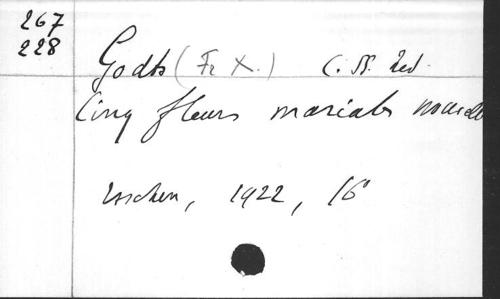 267
228
Godts (Fr X.) C. SS. Red.
Cinq fleurs mariales
Esschen, 1922, 16°